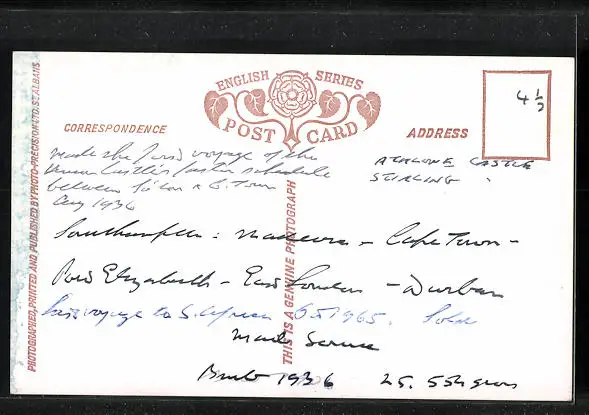 ENGLISH SERIES
POST CARD
CORRESPONDENCE
ADDRESS
4 1/2
made the first voyage of the
Union Castle's faster schedule
between S'ton & C. Town
Aug 1936
ATHLONE CASTLE
STIRLING "
Southampton : Madeira - Cape Town -
Port Elizabeth - East London - Durban
Last voyage to S. Africa 1965. Sold
Mail Service
Built 1936 25,554 gross
PHOTOGRAPHED, PRINTED AND PUBLISHED BY PHOTO-PRECISION LTD. ST. ALBANS
THIS IS A GENUINE PHOTOGRAPH